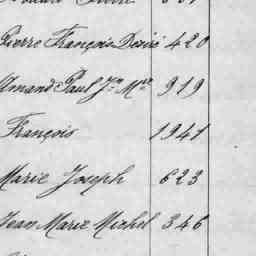 Pierre François Désiré 420
Amand Paul Jn Mie 919
François 1941
Marie Joseph 623
Jean Marie Michel 346